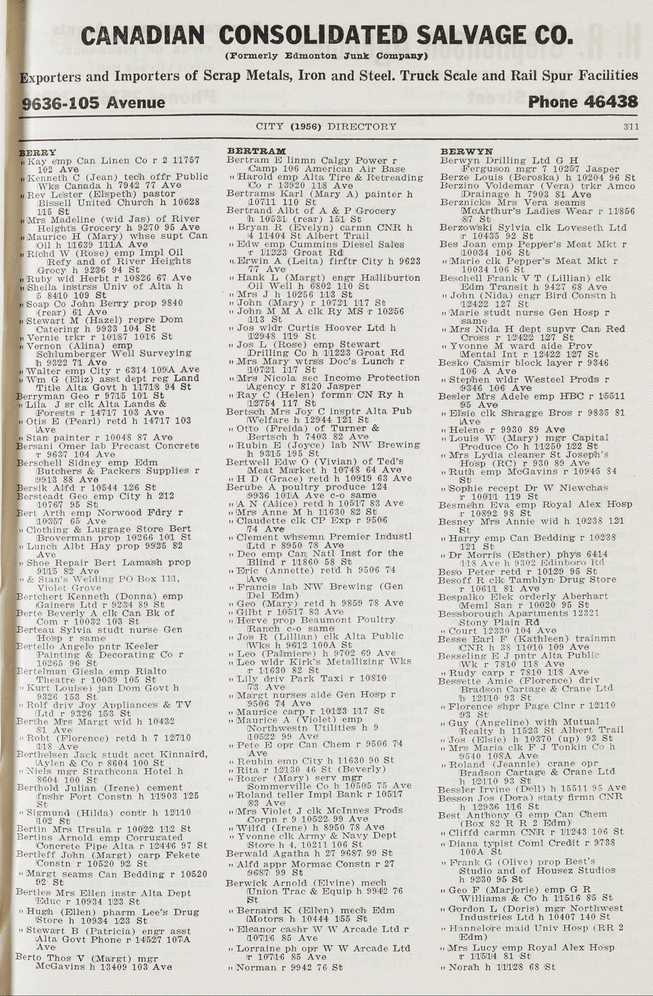 CANADIAN CONSOLIDATED SALVAGE CO.
(Formerly Edmonton Junk Company)
Exporters and Importers of Scrap Metals, Iron and Steel. Truck Scale and Rail Spur Facilities
9636-105 Avenue Phone 46438
CITY (1956) DIRECTORY 311
BERRY
" Kay emp Can Linen Co r 2 11757
102 Ave
" Kenneth C (Jean) tech offr Public
Wks Canada h 7942 77 Ave
" Rev Lester (Elspeth) pastor
Bissell United Church h 10628
115 St
" Mrs Madeline (wid Jas) of River
Height's Grocery h 9270 95 Ave
" Maurice H (Mary) whse supt Can
Oil h 11639 111A Ave
" Richd W (Rose) emp Impl Oil
Refy and of River Heights
Grocy h 9236 94 St
" Ruby wid Herbt r 10826 67 Ave
" Sheila instrss Univ of Alta h
5 8410 109 St
" Soap Co John Berry prop 9840
(rear) 61 Ave
" Stewart M (Hazel) repre Dom
Catering h 9933 104 St
" Vernie trkr r 10187 1016 St
" Vernon (Alina) emp
Schlumberger Well Surveying
h 9322 71 Ave
" Walter emp City r 6314 109A Ave
" Wm G (Eliz) asst dept reg Land
Title Alta Govt h 11718 94 St
Berryman Geo r 9715 101 St
" Lila J sr clk Alta Lands &
Forests r 14717 103 Ave
" Otis E (Pearl) retd h 14717 103
Ave
" Stan painter r 10048 87 Ave
Bersani Omer lab Precast Concrete
r 9637 104 Ave
Berschell Sidney emp Edm
Butchers & Packers Supplies r
9913 88 Ave
Bersik Alfd r 10544 126 St
Bersteadt Geo emp City h 212
10767 95 St
Bert Arth emp Norwood Fdry r
10357 65 Ave
" Clothing & Luggage Store Bert
Broverman prop 10266 101 St
" Lunch Albt Hay prop 9925 82
Ave
" Shoe Repair Bert Lamash prop
9115 82 Ave
" & Stan's Welding PO Box 111,
Violet Grove
Bertchert Kenneth (Donna) emp
Gainers Ltd r 9234 89 St
Berte Beverly A clk Can Bk of
Com r 10032 103 St
Berteau Sylvia studt nurse Gen
Hosp r same
Bertello Angelo pntr Keeler
Painting & Decorating Co r
10265 96 St
Bertelman Giesla emp Rialto
Theatre r 10039 105 St
" Kurt Louise) jan Dom Govt h
9326 153 St
" Rolf driv Joy Appliances & TV
Ltd r 9326 153 St
Berthe Mrs Margt wid h 10432
81 Ave
" Robt (Florence) retd h 7 12710
118 Ave
Berthelsen Jack studt acct Kinnaird,
Aylen & Co r 8604 100 St
" Niels mgr Strathcona Hotel h
8604 100 St
Berthold Julian (Irene) cement
fnshr Fort Constn h 11903 125
St
" Sigmund (Hilda) contr h 12110
102 St
Bertin Mrs Ursula r 10022 112 St
Bertins Arnold emp Corrugated
Concrete Pipe Alta r 12446 97 St
Bertleff John (Margt) carp Fekete
Constn r 10520 92 St
" Margt seams Can Bedding r 10520
92 St
Bertles Mrs Ellen instr Alta Dept
Educ r 10934 123 St
" Hugh (Ellen) pharm Lee's Drug
Store h 10934 123 St
" Stewart B (Patricia) engr asst
Alta Govt Phone r 14527 107A
Ave
Berto Thos V (Margt) mgr
McGavins h 13409 103 Ave
BERTRAM
Bertram E linmn Calgy Power r
Camp 106 American Air Base
" Harold emp Alta Tire & Retreading
Co r 13920 118 Ave
Bertrams Karl (Mary A) painter h
10711 110 St
Bertrand Albt of A & P Grocery
h 10531 (rear) 151 St
" Bryan R (Evelyn) carmn CNR h
4 11404 St Albert Trail
" Edw emp Cummins Diesel Sales
r 11223 Groat Rd
" Erwin A (Leita) firftr City h 9623
77 Ave
" Hank L (Margt) engr Halliburton
Oil Well h 6802 110 St
" Mrs J h 10256 113 St
" John (Mary) r 10721 117 St
" John M M A clk Ry MS r 10256
113 St
" Jos wldr Curtis Hoover Ltd h
12948 119 St
" Jos L (Rose) emp Stewart
Drilling Co h 11223 Groat Rd
" Mrs Mary wtrss Doc's Lunch r
10721 117 St
" Mrs Nicola sec Income Protection
Agency r 8120 Jasper
" Ray C (Helen) formn CN Ry h
12754 117 St
Bertsch Mrs Joy C insptr Alta Pub
Welfare h 12944 121 St
" Otto (Preida) of Turner &
Bertsch h 7403 82 Ave
" Rubin E (Joyce) lab NW Brewing
h 9315 195 St
Bertwell Edw O (Vivian) of Ted's
Meat Market h 10748 64 Ave
" H D (Grace) retd h 10919 63 Ave
Berube A poultry produce 124
9936 101A Ave c-o same
" A N (Alice) retd h 10517 83 Ave
" Mrs Anne M h 11630 82 St
" Claudette clk CP Exp r 9506
74 Ave
" Clement whsemn Premier Industl
Ltd r 8950 78 Ave
" Deo emp Can Natl Inst for the
Blind r 11860 58 St
" Eric (Annette) r 9506 74
Ave
" Francis lab NW Brewing (Gen
Del Edm)
" Geo (Mary) retd h 9859 78 Ave
" Gilbt r 10517 83 Ave
" Herve prop Beaumont Poultry
Ranch c-o same
" Jos R (Lillian) clk Alta Public
Wks h 9612 100A St
" Leo (Palmiere) h 9702 69 Ave
" Leo wldr Kirk's Metallizing Wks
r 11630 82 St
" Lily driv Park Taxi r 10810
73 Ave
" Margt nurses aide Gen Hosp r
9506 74 Ave
" Maurice carp r 10123 117 St
" Maurice A (Violet) emp
Northwestn Utilities h 9
10522 99 Ave
" Pete E opr Can Chem r 9506 74
Ave
" Reubin emp City h 11630 90 St
" Rita r 12130 46 St (Beverly)
" Roger (Mary) serv mgr
Sommerville Co h 10505 75 Ave
" Roland teller Impl Bank r 10517
83 Ave
" Mrs Violet J clk McInnes Prods
Corpn r 9 10522 99 Ave
" Wilfd (Irene) h 8950 78 Ave
" Yvonne clk Army & Navy Dept
Store h 4, 10211 106 St
Berwald Agatha h 27 9687 99 St
" Alfd appr Mormac Constn r 27
9687 99 St
Berwick Arnold (Elvine) mech
Union Trac & Equip h 9942 76
St
" Bernard K (Ellen) mech Edm
Motors h 10444 155 St
" Eleanor cashr W W Arcade Ltd r
10716 85 Ave
" Lorraine ph opr W W Arcade Ltd
r 10716 85 Ave
" Norman r 9942 76 St
BERWYN
Berwyn Drilling Ltd G H
Ferguson mgr 7 10257 Jasper
Berze Louis (Beroska) h 10204 96 St
Berzino Voldemar (Vera) trkr Amco
Drainage r 7903 81 Ave
Berznicks Mrs Vera seams
McArthur's Ladies Wear r 11856
87 St
Berzowski Sylvia clk Loveseth Ltd
r 10435 92 St
Bes Joan emp Pepper's Meat Mkt r
10034 106 St
" Marie clk Pepper's Meat Mkt r
10034 106 St
Beschell Frank V T (Lillian) clk
Edm Transit h 9427 68 Ave
" John (Nida) engr Bird Constn h
12422 127 St
" Marie studt nurse Gen Hosp r
same
" Mrs Nida H dept supvr Can Red
Cross r 12422 127 St
" Yvonne M ward aide Prov
Mental Inst r 12422 127 St
Besko Casmir block layer r 9346
106 A Ave
" Stephen wldr Westeel Prods r
9346 106 Ave
Besler Mrs Adele emp HBC r 15511
95 Ave
" Elsie clk Shragge Bros r 9835 81
Ave
" Helene r 9930 89 Ave
" Louis W (Mary) mgr Capital
Produce Co h 11250 122 St
" Mrs Lydia cleaner St Joseph's
Hosp (RC) r 930 89 Ave
" Ruth emp McGavins r 10945 84
St
" Sophie recept Dr W Niewchas
r 10011 119 St
Besmehn Eva emp Royal Alex Hosp
r 10892 98 St
Besney Mrs Annie wid h 10238 121
St
" Harry emp Can Bedding r 10238
121 St
" Dr Morris (Esther) phys 6414
118 Ave h 9302 Edinboro Rd
Beso Peter retd r 10129 95 St
Besoff R clk Tamblyn Drug Store
r 10611 81 Ave
Bespalko Elek orderly Aberhart
Meml San r 10020 95 St
Bessborough Apartments 12321
Stony Plain Rd
" Court 12330 104 Ave
Besse Earl F (Kathleen) trainmn
CNR h 38 11010 109 Ave
Besseling E J pntr Alta Public
Wk r 7810 118 Ave
" Rudy carp r 7810 118 Ave
Bessette Amie (Florence) driv
Bradson Cartage & Crane Ltd
h 12110 93 St
" Florence shpr Page Clnr r 12110
93 St
" Guy (Angeline) with Mutual
Realty h 11523 St Albert Trail
" Jos (Elsie) h 10370 (up) 93 St
" Mrs Maria clk F J Tonkin Co h
9540 108A Ave
" Roland (Jeannie) crane opr
Bradson Cartage & Crane Ltd
h 12110 93 St
Bessler Irvine (Dell) h 15511 95 Ave
Besson Jos (Dora) staty firmn CNR
h 12936 116 St
Best Anthony G emp Can Chem
(Box 82 R R 2 Edm)
" Cliffd carmn CNR r 11243 106 St
" Diana typist Coml Credit r 9738
100A St
" Frank G (Olive) prop Best's
Studio and of Housez Studios
h 9230 95 St
" Geo F (Marjorie) emp G R
Williams & Co h 11516 85 St
" Gordon L (Doris) mgr Northwest
Industries Ltd h 10407 140 St
" Hannelore maid Univ Hosp (RR 2
Edm)
" Mrs Lucy emp Royal Alex Hosp
r 11514 81 St
" Norah h 11128 68 St